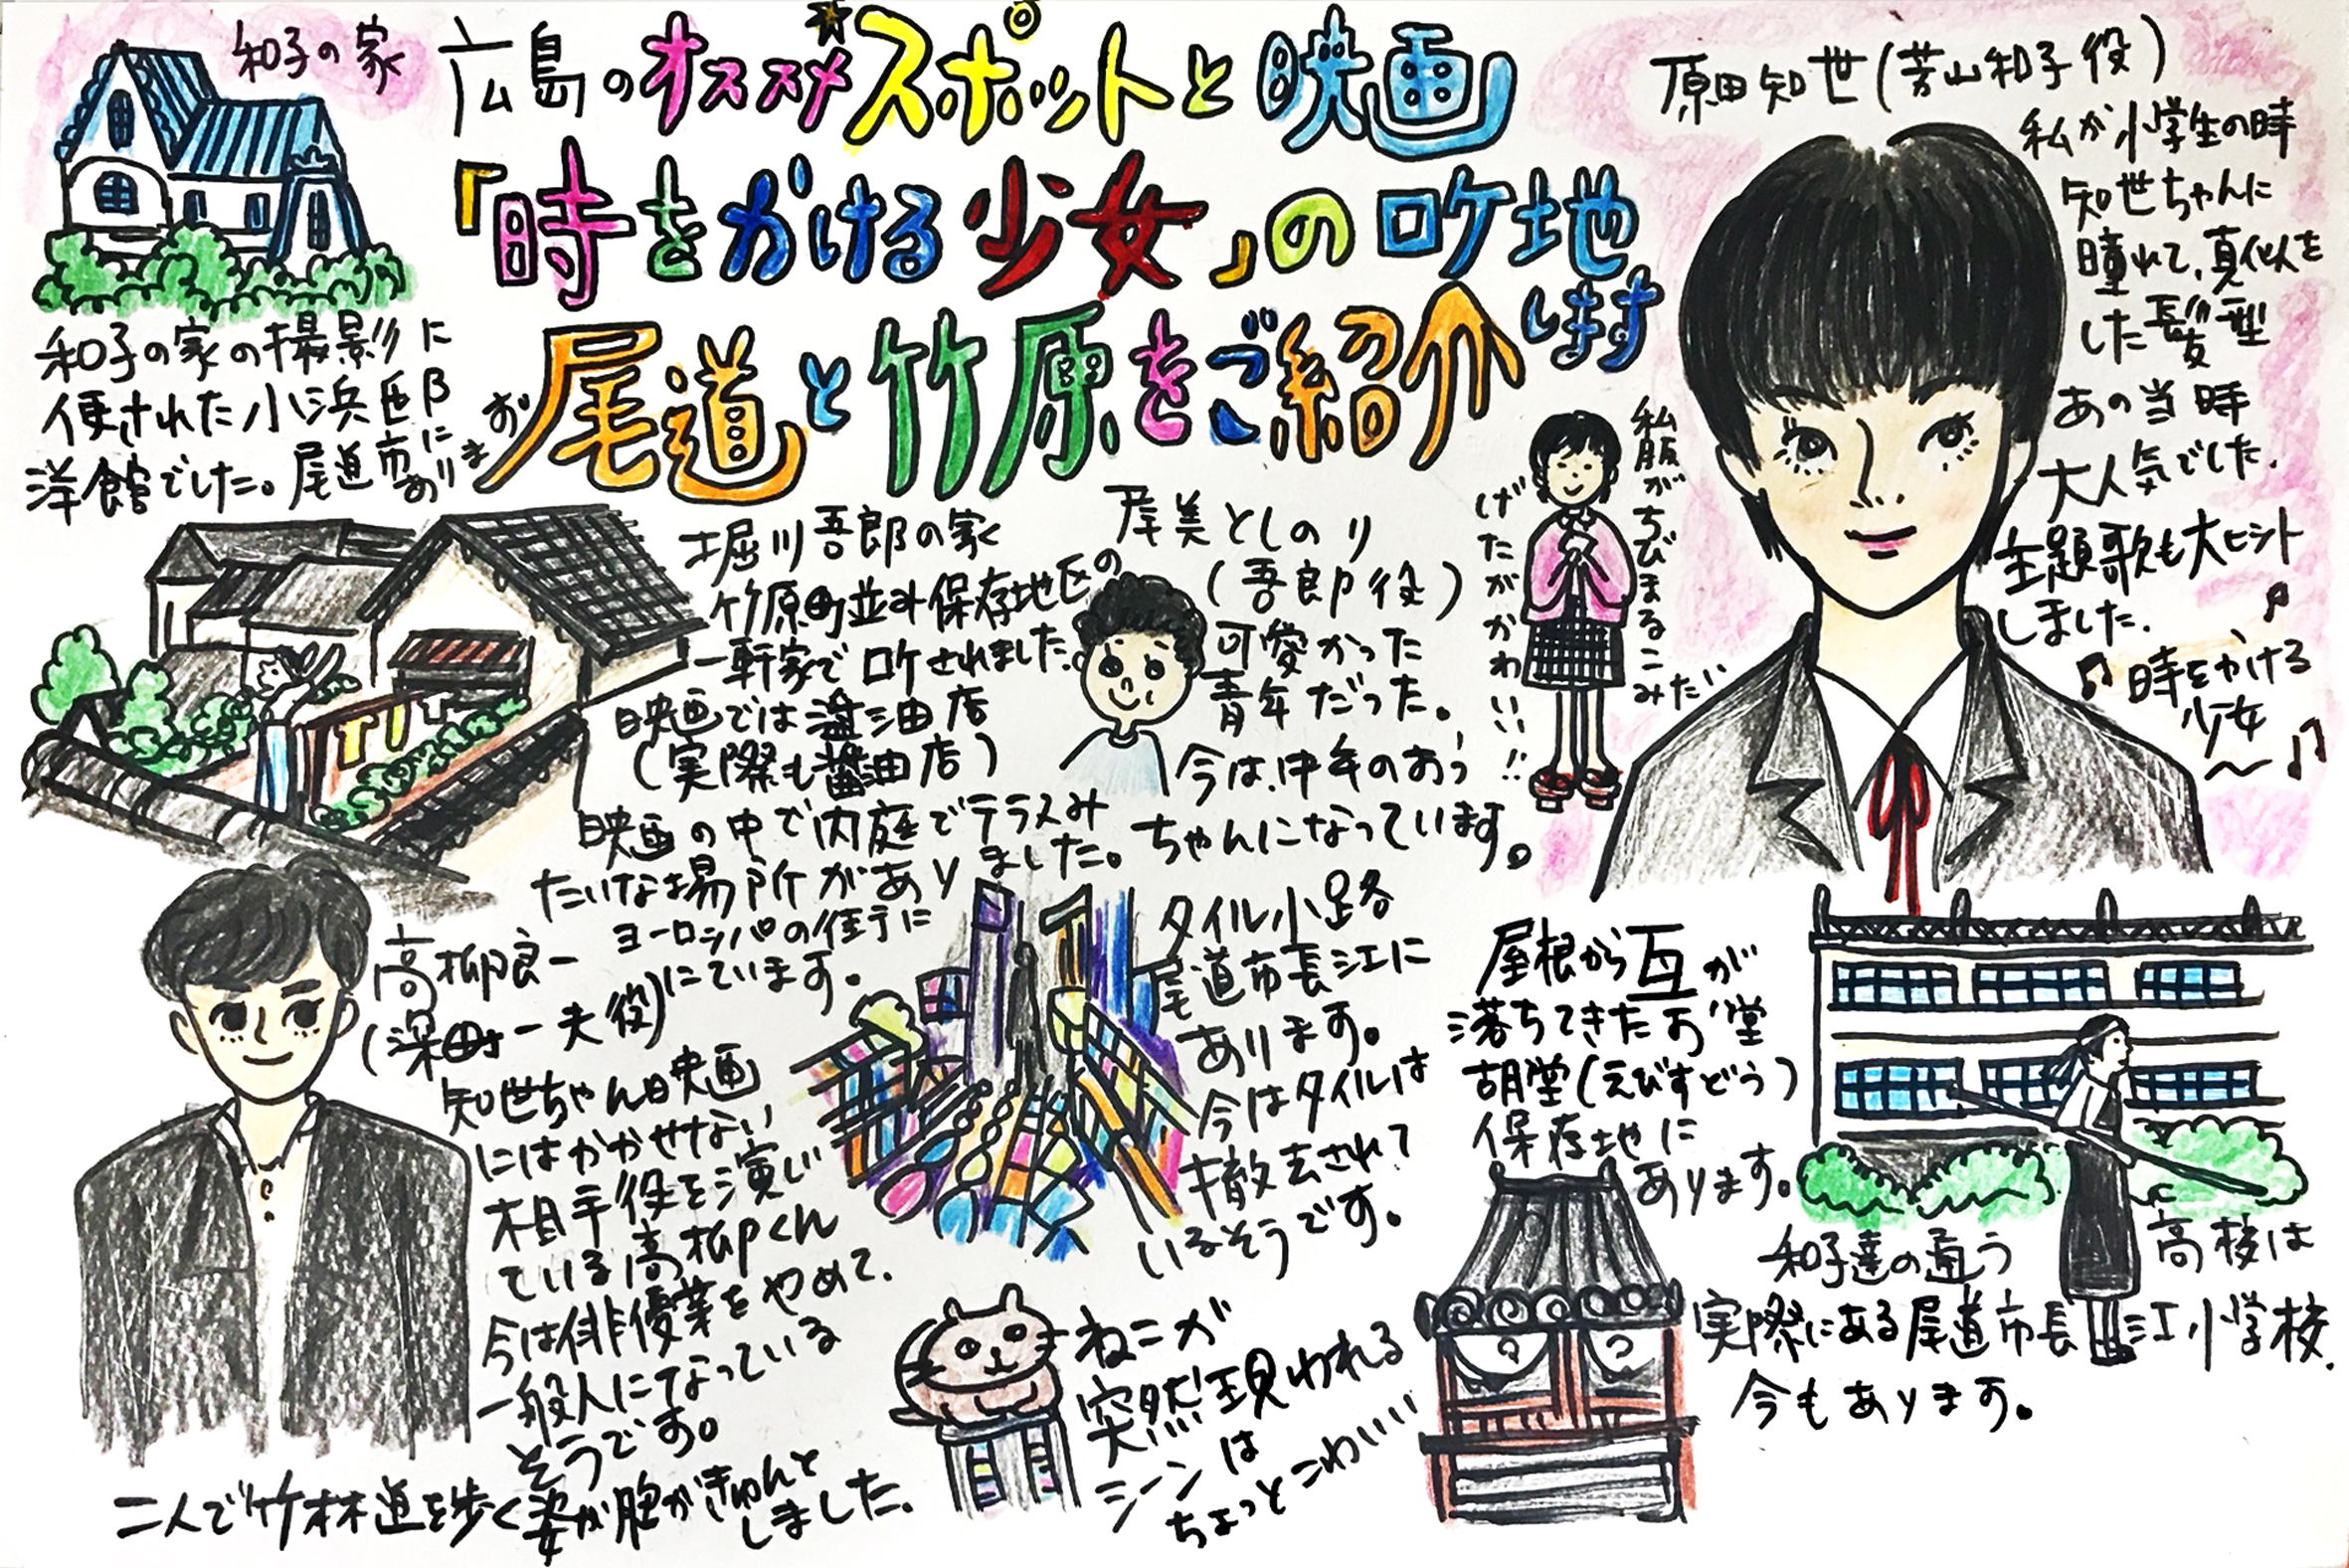 広島のオススメスポットと映画
「時をかける少女」のロケ地
尾道と竹原をご紹介します
和子の家
和子の家の撮影に
使された小浜邸
洋館でした。尾道市に
あります
原田知世(芳山和子役)
私が小学生の時
知世ちゃんに
憧れて、真似を
した髪型
あの当時
大人気でした。
主題歌も大ヒット
しました。
♪時をかける
少女
〜♪
私服がちびまるこみたい
げたがかわいい!!
堀川吾郎の家
竹原町並み保存地区の
一軒家でロケされました。
映画では醤油店
(実際も醤油店)
映画の中で内庭でテラスみ
たいな場所がありました。
ヨーロッパの街に
にています。
尾美としのり
(吾郎役)
可愛かった
青年だった。
今は、中年のおっ
ちゃんになっています。
高柳良一
(深町一夫役)
知世ちゃん映画
にはかかせない
相手役を演じ
ている高柳くん
今は俳優業をやめて、
一般人になっている
そうです。
二人で竹林道を歩く姿が胸がきゅんと
しました。
タイル小路
尾道市長江に
あります。
今はタイルは
撤去されて
いるそうです。
ねこが
突然現われる
シーンは
ちょっとこわいい
屋根から瓦が
落ちてきたお堂
胡堂(えびすどう)
保存地に
あります。
和子達の通う高校は
実際にある尾道市長江小学校。
今もあります。